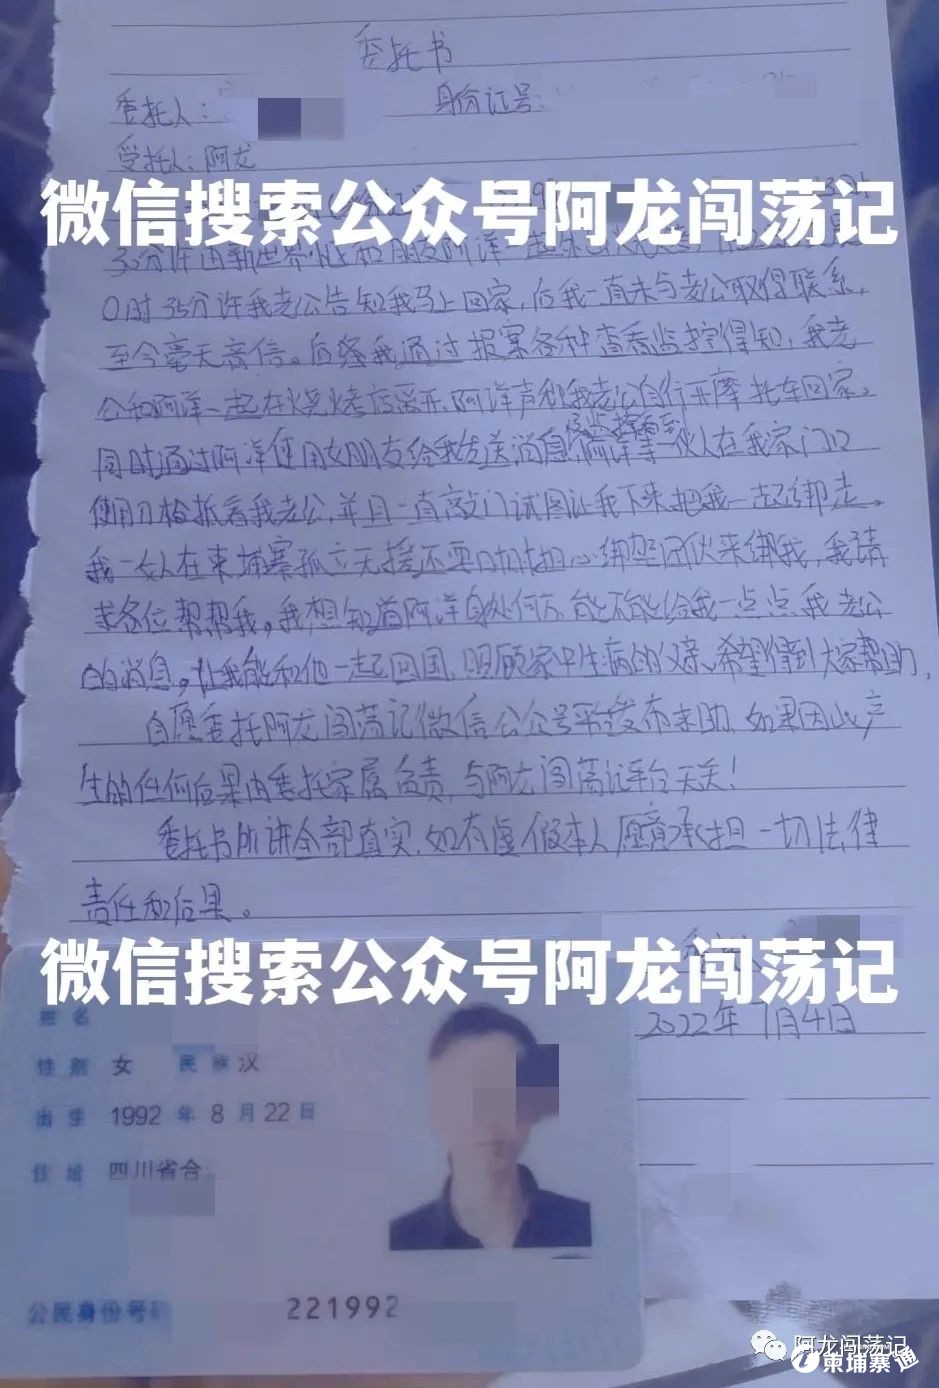 委托书
委托人: 身份证号:
受托人:阿龙
微信搜索公众号阿龙闯荡记
30分许由新世界 和朋友阿洋一起
0时35分许我老公告知我马上回家,后我一直未与老公取得联系,
至今毫无音信。后经我通过报案各种查看监控得知,我老
公和阿洋一起在烧烤店离开,阿洋声称我老公自行开摩托车回家。
同时通过阿洋使用女朋友给我发送消息, 阿洋等一伙人在我家门口
使用刀枪抵着我老公,并且一直敲门试图让我下来把我一起绑走。
我一女人在柬埔寨孤立无援还要时时担心绑架团伙来绑我,我请
求各位帮帮我。我想知道阿洋身处何方,能不能给我一点点我老公
的消息。让我能和他一起回国,照顾家中生病的父亲。希望得到大家帮助。
自愿委托阿龙闯荡记微信公众号来发布求助,如果因此产
生的任何后果由委托家属负责,与阿龙闯荡记平台无关!
委托书所讲全部真实,如有虚假本人愿意承担一切法律
责任和后果。
微信搜索公众号阿龙闯荡记
2022年7月4日
姓名
性别 女 民族 汉
出生 1992 年 8 月 22 日
住址 四川省合
公民身份号
221992
阿龙闯荡记
柬埔寨通